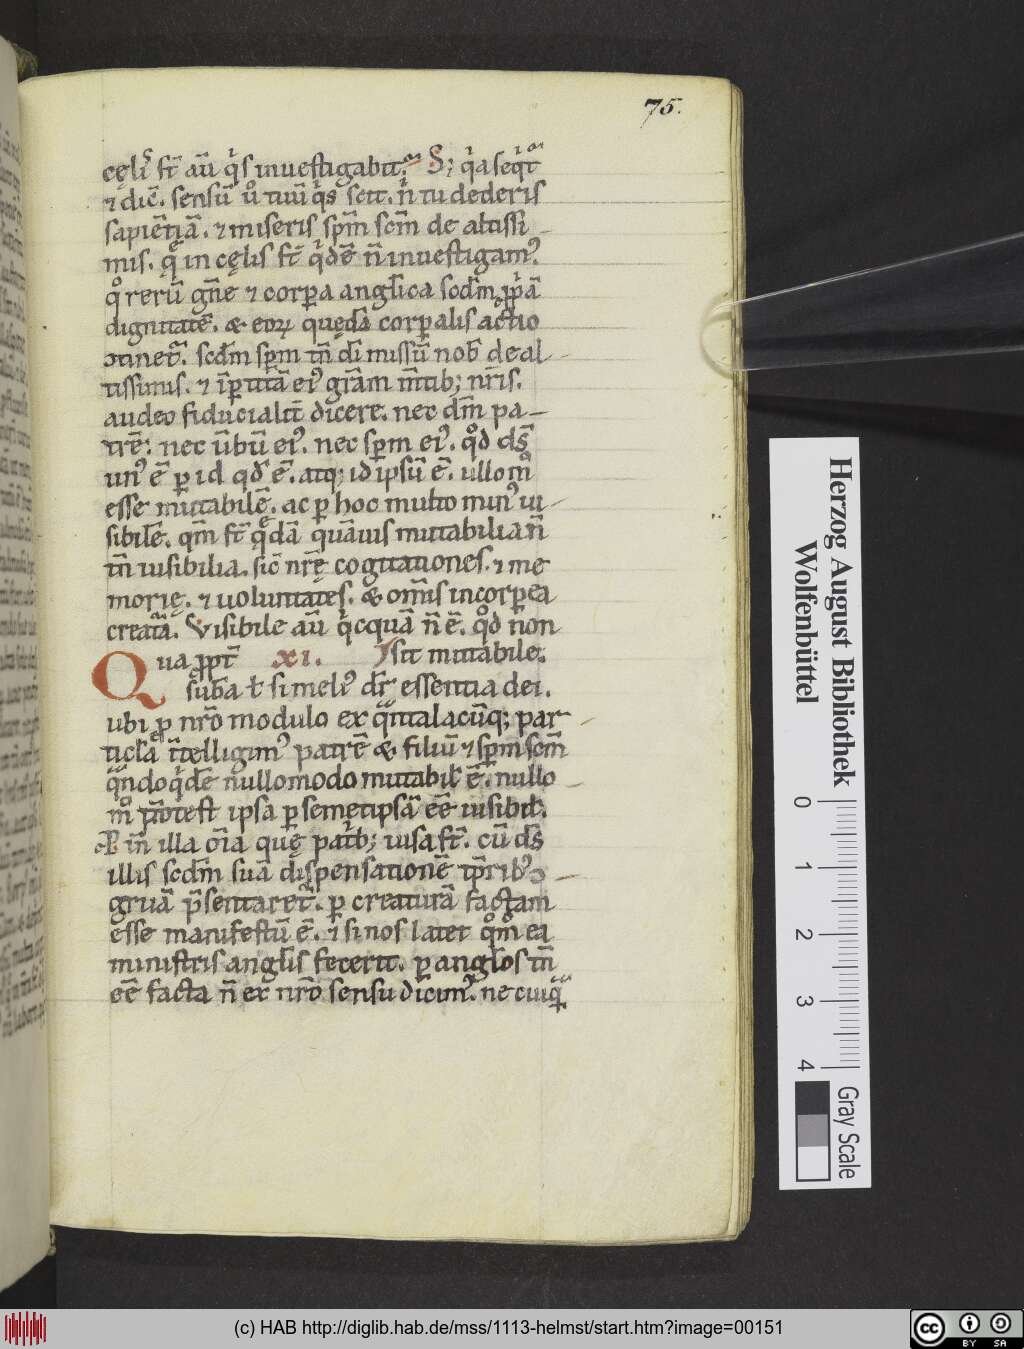 75.
cęlis st̄ aū qͥs inuestigabit. S; qͥa seqͥt̄
⁊ dic̄. sensū ů tuū qͥs scit. nͥ tu dederis
sapiētiā. ⁊ miseris sp̄m sc̄m de altissi
mis. q̨ in cęlis st̄ qͥdē n̄ inuestigam᾽.
qͦ rerū gn̄e ⁊ corpa anglica scd̄m ꝓpͥā
dignitatē. & eoꝝ quędā corꝑalis actio
ↄtinet᷑. scd̄m sp̄m tn̄ di missū nob̄ de al
tissimis. ⁊ īꝑtitā ei᾽ gr̄am m̄tib; nr̄is.
audeo fiducialit̄ dicere. nec dm̄ pa
trē. nec ūbū ei᾽. nec sp̄m ei᾽. qͦd ds̄
un᾽ ē ꝑ id qd̄ ē. atq; id ipsū ē. ullo mͦ
esse mutabilē. ac ꝑ hoc multo min᾽ ui
sibilē. qm̄ st̄ q̄dā quāuis mutabilia n̄
tn̄ uisibilia. sic̄ nr̄ę cogitationes. ⁊ me
morię. ⁊ uoluntates. & om̄is incorꝑea
creat̄a. Visibile aū qͥcquā n̄ ē. qͦd non
Qua ꝓpt̄ xi. sit mutabile.
suba ł si meli᾽ dr̄ essentia dei.
ubi ꝑ nr̄o modulo ex qͣntalacūq; par
ticla ītelligim᾽ patrē & filiū ⁊ sp̄m sc̄m
qͣndoqͥdē nullomodo mutabil̄ ē. nullo
mͦ potest ipsa ꝑ semetipsā eē uisibil̄.
P in̄ illa oīa quę patͥb; uisa st̄. cū ds̄
illis scd̄m suā dispensationē tp̄rib᾽ ↄ
gruā p̄sentaret᷑. ꝑ creaturā factam
esse manifestū ē. ⁊ si nos latet qͦmͦ ea
ministris angl̄is fecerit. ꝑ angl̄os tn̄
eē facta n̄ ex nr̄o sensu dicim᷒. ne cuiqͣ
Herzog August Bibliothek
Wolfenbüttel
0 1 2 3 4
Gray Scale
(c) HAB http://diglib.hab.de/mss/1113-helmst/start.htm?image=00151
cc BY SA